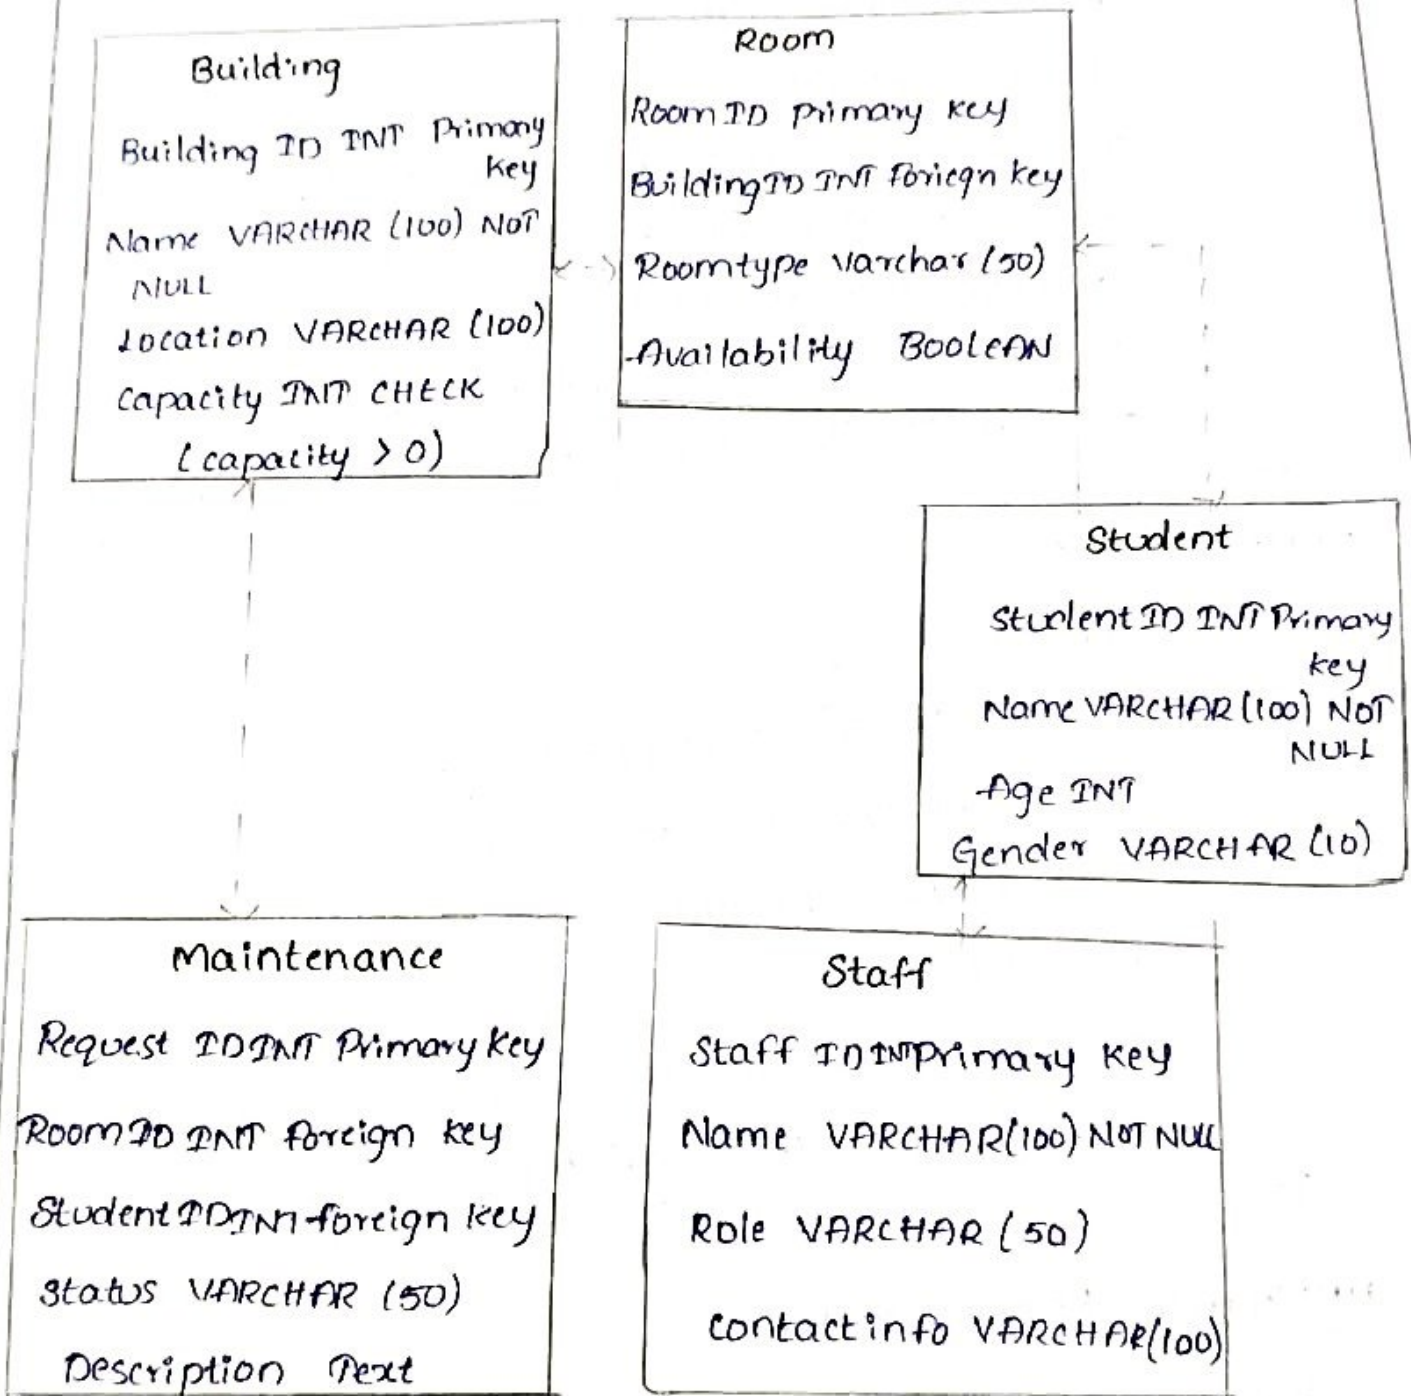 Building
Building ID INT Primary
Key
Name VARCHAR (100) NOT
NULL
Location VARCHAR (100)
Capacity INT CHECK
(capacity > 0)
Room
Room ID Primary Key
Building ID INT Foriegn key
Roomtype Varchar (50)
Availability BOOLEAN
Student
Student ID INT Primary
key
Name VARCHAR (100) NOT
NULL
Age INT
Gender VARCHAR (10)
Maintenance
Request ID INT Primary Key
Room ID INT foreign key
Student ID INT foreign key
Status VARCHAR (50)
Description Text
Staff
Staff ID INT Primary Key
Name VARCHAR(100) NOT NULL
Role VARCHAR (50)
contact info VARCHAR(100)